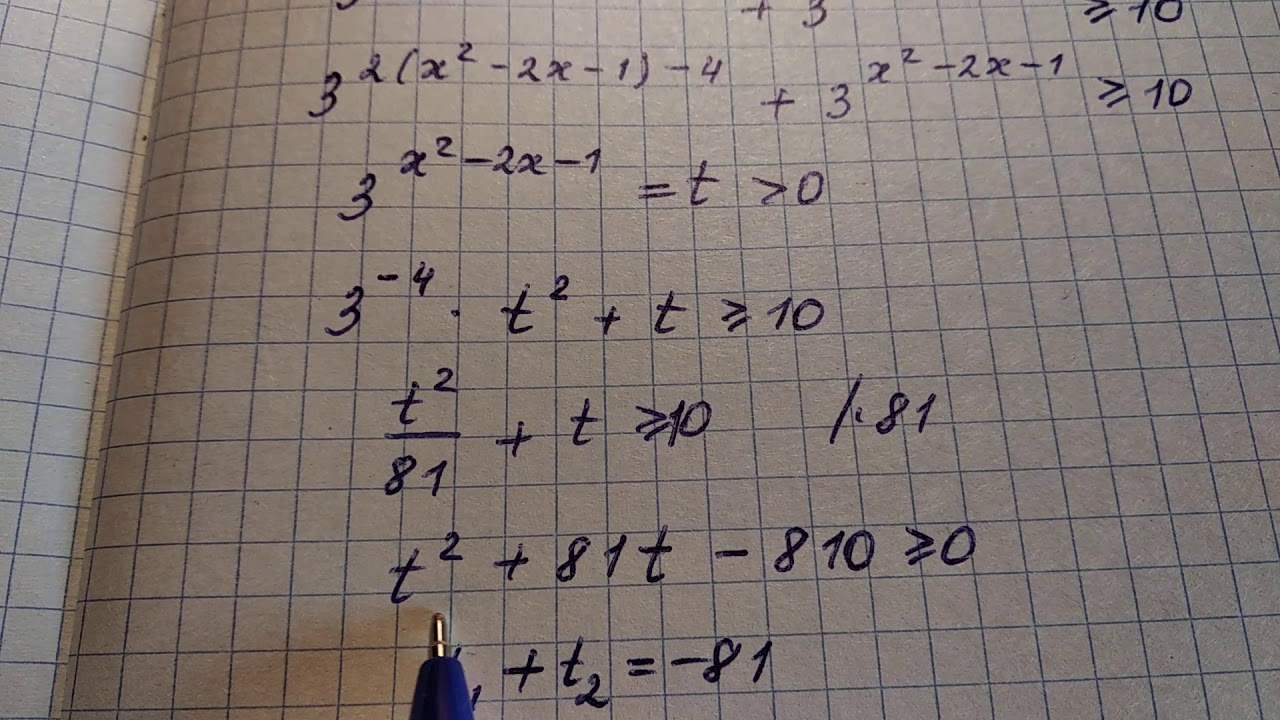 + 3 ≥ 10
3^{2(x² - 2x - 1) - 4} + 3^{x² - 2x - 1} ≥ 10
3^{x² - 2x - 1} = t > 0
3^{-4} · t² + t ≥ 10
t²/81 + t ≥ 10 /· 81
t² + 81t - 810 ≥ 0
₁ + t₂ = -81